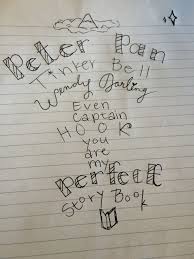 Peter Pan
Tinker Bell
Wendy Darling
Even
Captain
HOOK
you
are
my
PERFECT
Story Book